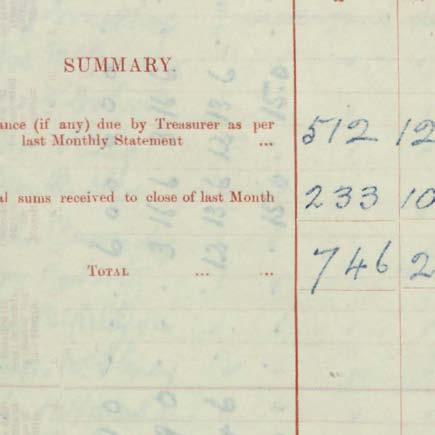 SUMMARY.
ance (if any) due by Treasurer as per
last Monthly Statement ... 512 12
al sums received to close of last Month 233 10
TOTAL ... ... 746 2